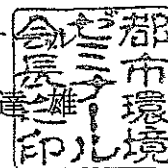 都市環境
ゼミナール
会長之印
雄